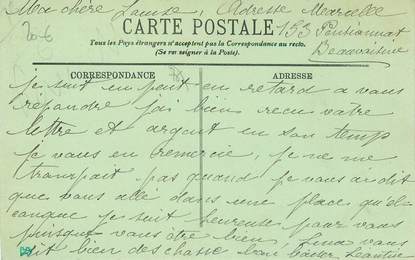 Ma chère Louise, Adresse Marcelle
CARTE POSTALE
155 Pensionnat
Tous les Pays étrangers n'acceptent pas la Correspondance au recto.
(Se renseigner à la Poste).
Beauvaisine
CORRESPONDANCE
ADRESSE
je suit un peut en retard a vous
repondre j'ai bien recu votre
lettre et argent en son temps
je vous en remercie, je ne me
transpait pas quand je vous ai dit
que vous allé dans une place quel
conque je suit heureuse pour vous
puisque vous être bien,
dit bien des chose